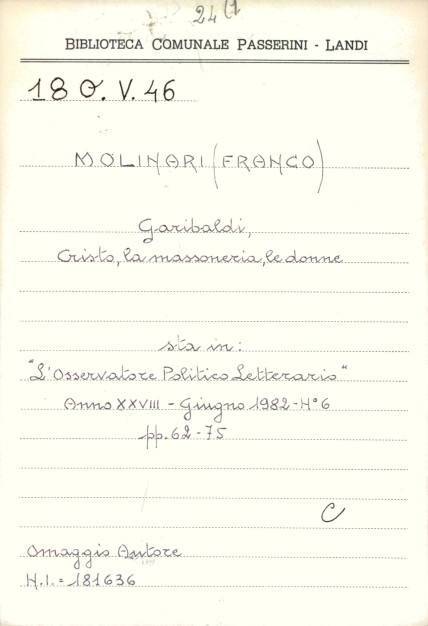 24(1
BIBLIOTECA COMUNALE PASSERINI - LANDI
18 O. V. 46
MOLINARI (FRANCO)
Garibaldi,
Cristo, la massoneria, le donne
sta in:
"L'Osservatore Politico Letterario"
Anno XXVIII - Giugno 1982 - N° 6
pp. 62 - 75
C
Omaggio Autore
N.I. = 181636